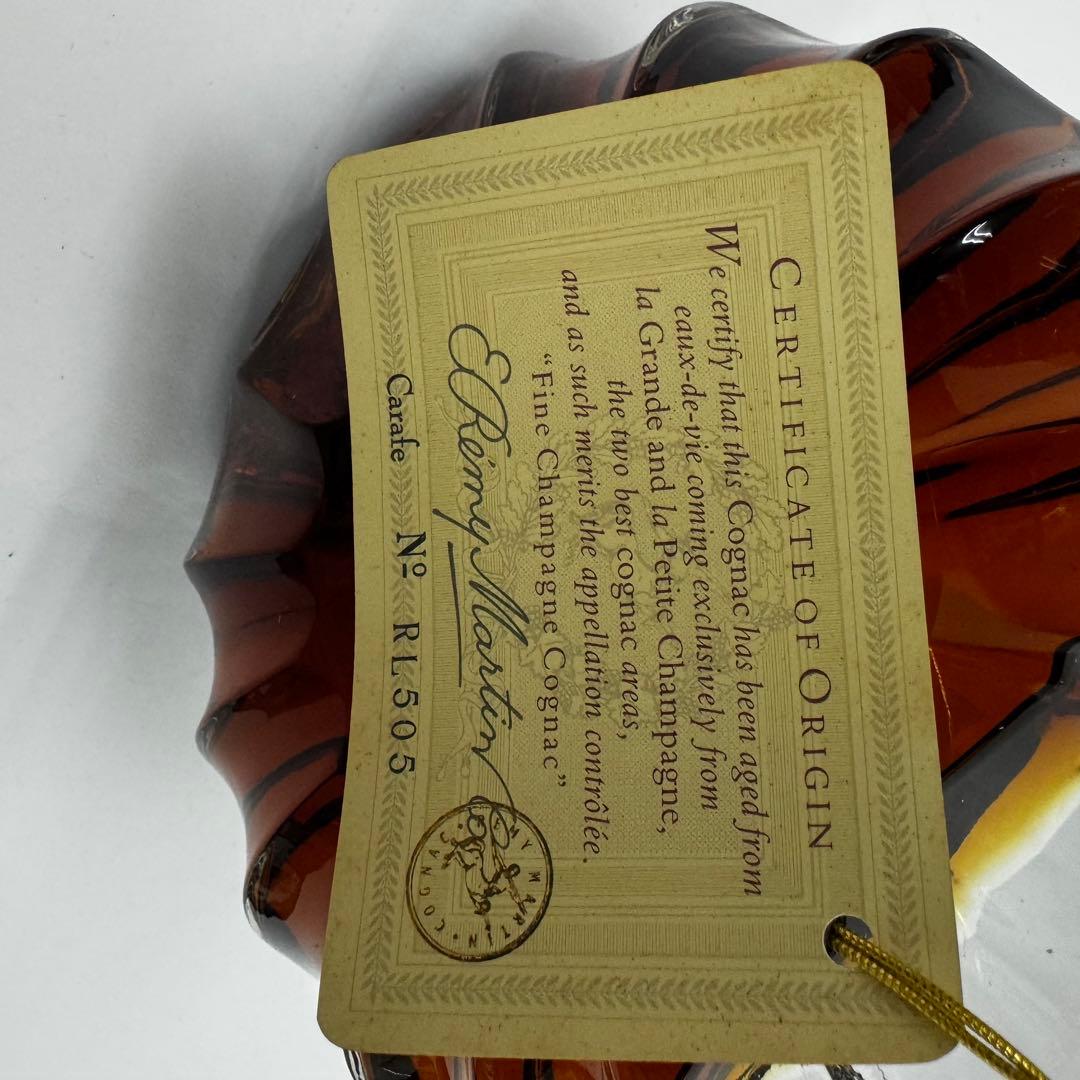 CERTIFICATE OF ORIGIN
We certify that this Cognac has been aged from
eaux-de-vie coming exclusively from
la Grande and la Petite Champagne,
the two best cognac areas,
and as such merits the appellation contrôlée.
“Fine Champagne Cognac”
E. Rémy Martin & Co
Carafe Nº RL505
RÉMY MARTIN • COGNAC •